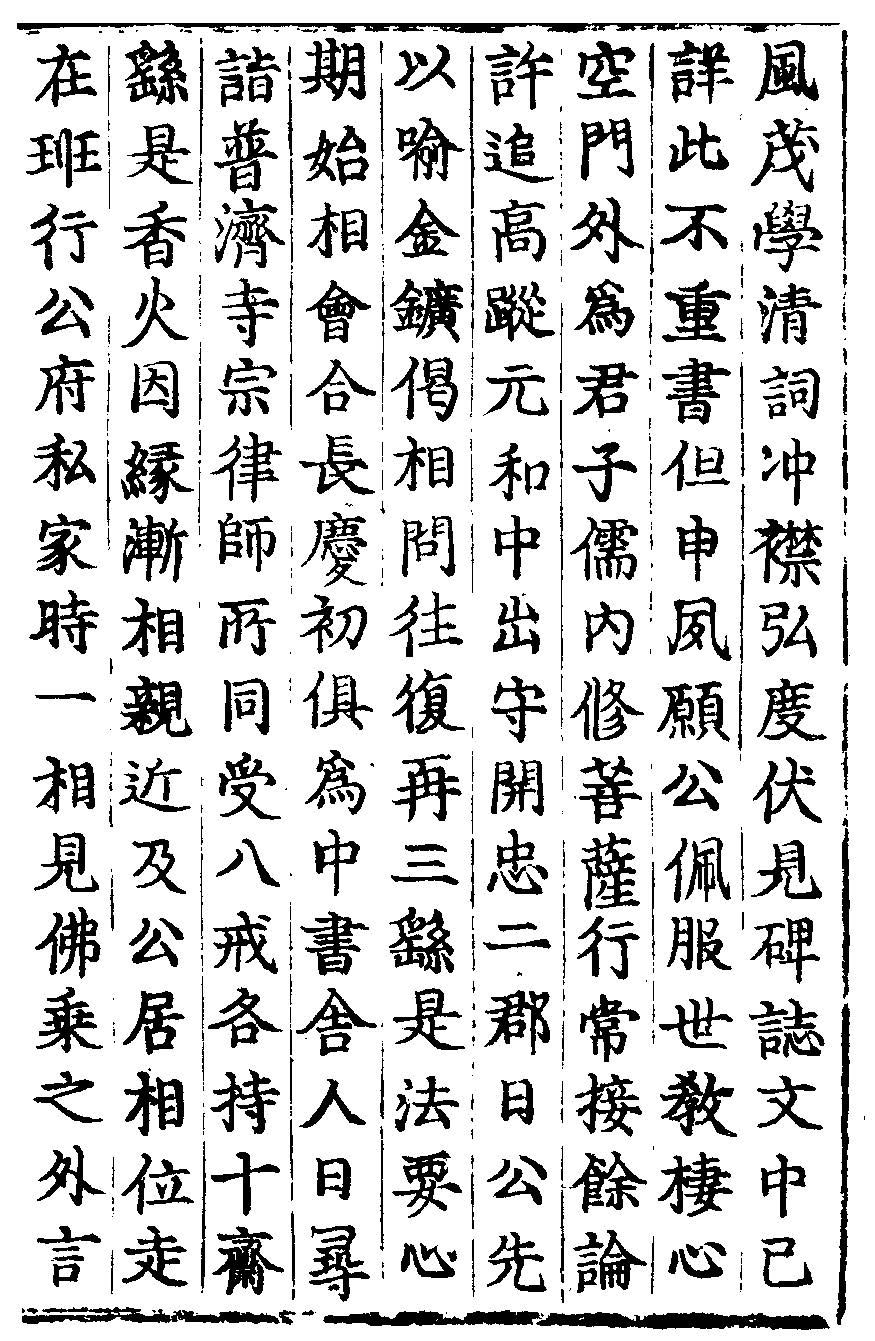 風茂學清詞冲襟弘度伏見碑誌文中已
詳此不重書但申夙願公佩服世教棲心
空門外為君子儒内修菩薩行常接餘論
許追高蹤元和中出守開忠二郡日公先
以喻金鑛偈相問往復再三繇是法要心
期始相會合長慶初俱為中書舎人日尋
詣普濟寺宗律師所同受八戒各持十齋
繇是香火因縁漸相親近及公居相位走
在班行公府私家時一相見佛乗之外言